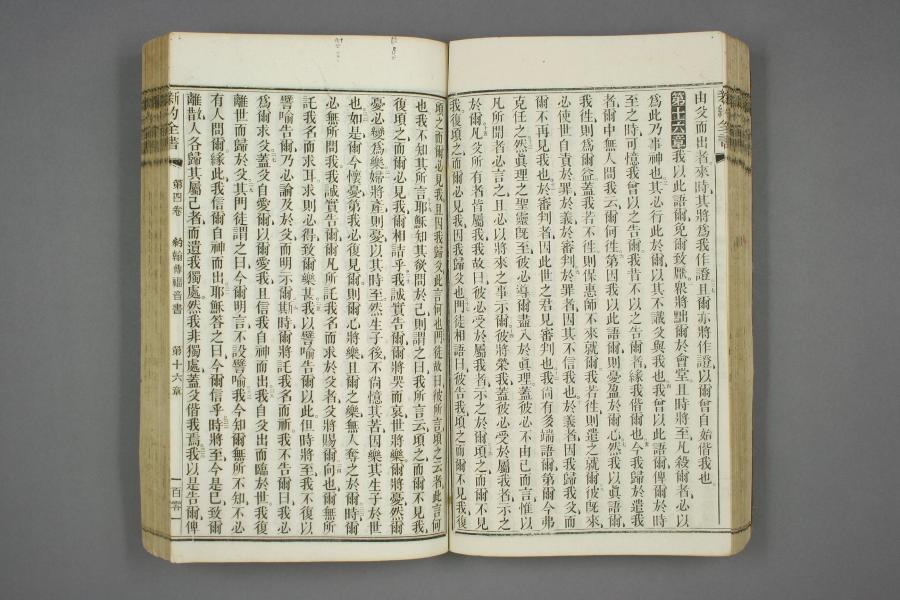 由父而出者來時其將爲我作證且爾亦將作證以爾曾自始偕我也
第十六章 我以此語爾免爾致厭衆將黜爾於會堂且時將至凡殺爾者必以
爲此乃事神也其必行此於爾以其不識父與我也我曾以此語爾俾爾於時
至之時可憶我曾以之告爾我昔不以之告爾者緣我偕爾也今我歸於遣我
者爾中無人問我云爾何往第因我以此語爾則憂盈於爾心然我以眞語爾
我往則爲爾益蓋我若不往則保惠師不來就爾我若往則遣之就爾彼旣來
必使世自責於罪於義於審判於罪者因其不信我也於義者因我歸我父而
爾不再見我也於審判者因此世之君見審判也我尚有多端語爾第爾今弗
克任之然眞理之聖靈旣至彼必導爾盡入於眞理蓋彼必不由己而言惟以
凡所聞者必言之且必以將來之事示爾彼將榮我蓋彼必受於屬我者示之
於爾凡父所有者皆屬我我故曰彼必受於屬我者示之於爾頃之而爾不見
我復頃之而爾必見我因我歸父也門徒相語曰彼告我頃之而爾不見我復
頃之而爾必見我且因我歸父此言何也門徒故曰彼所言頃之云者此言何
也我不知其所言耶穌知其欲問於己則謂之曰我所言云頃之而爾不見我
復頃之而爾必見我爾相詰乎我誠實告爾爾將哭而哀世將樂爾將憂然爾
憂必變爲樂婦將產則憂以其時至然生子後不尚憶其苦因樂其生子於世
也如是爾今懷憂第我必復見爾則爾心將樂且爾之樂無人奪之於爾時爾
必無所問我我誠實告爾爾凡所託我名而求於父者父將賜爾向也爾無所
託我名而求求則必得致爾樂甚我以譬喻告爾以此但時將至我不復以
譬喻告爾乃必論及於父而明示爾斯時爾將託我名而祈我不告爾曰我必
爲爾求父蓋父自愛爾以爾愛我且信我自神而出我自父出而臨於世我復
離世而歸於父其門徒謂之曰今爾明言不設譬喻我今知爾無所不知不必
有人問爾緣此我信爾自神而出耶穌答之曰今爾信乎時將至今是已致爾
離散人各歸其屬己者而遺我獨處然我非獨處蓋父偕我焉我以是告爾俾
新約全書 第四卷 約翰傳福音書 第十六章